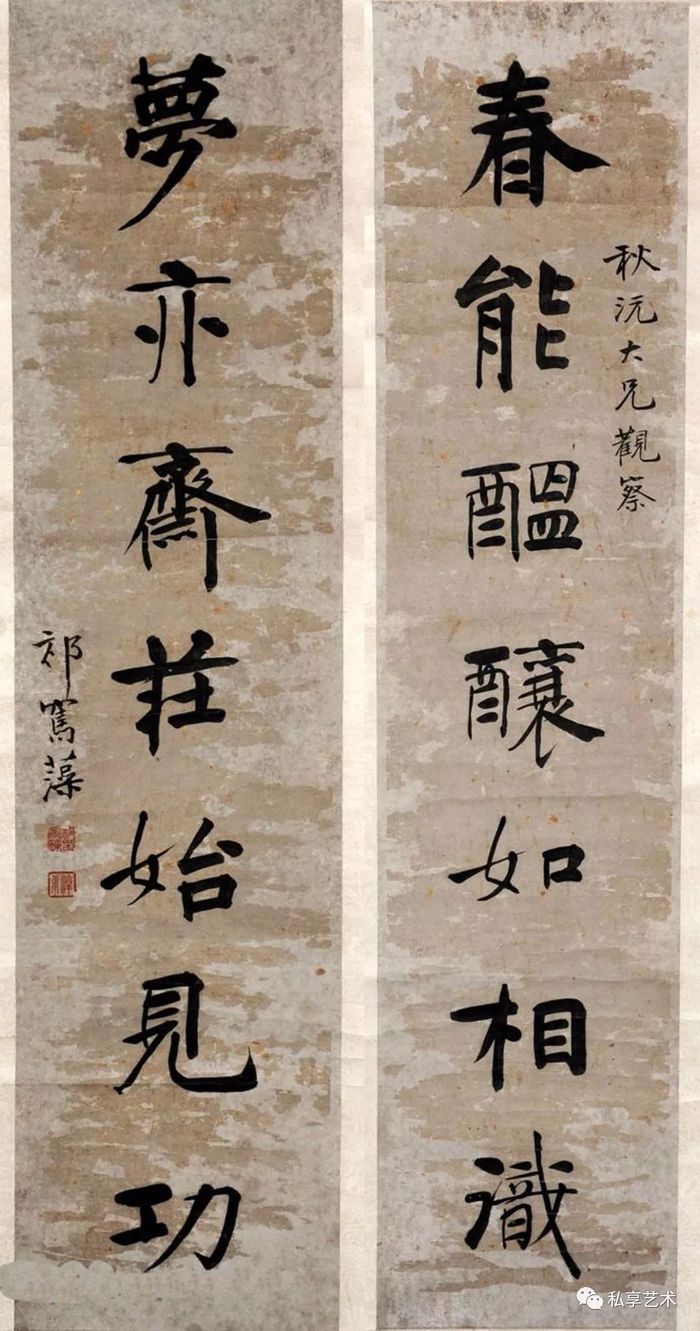 秋沅大兄觀察
春能醞釀如相識
夢亦齋莊始見功
祁寯藻
私享艺术